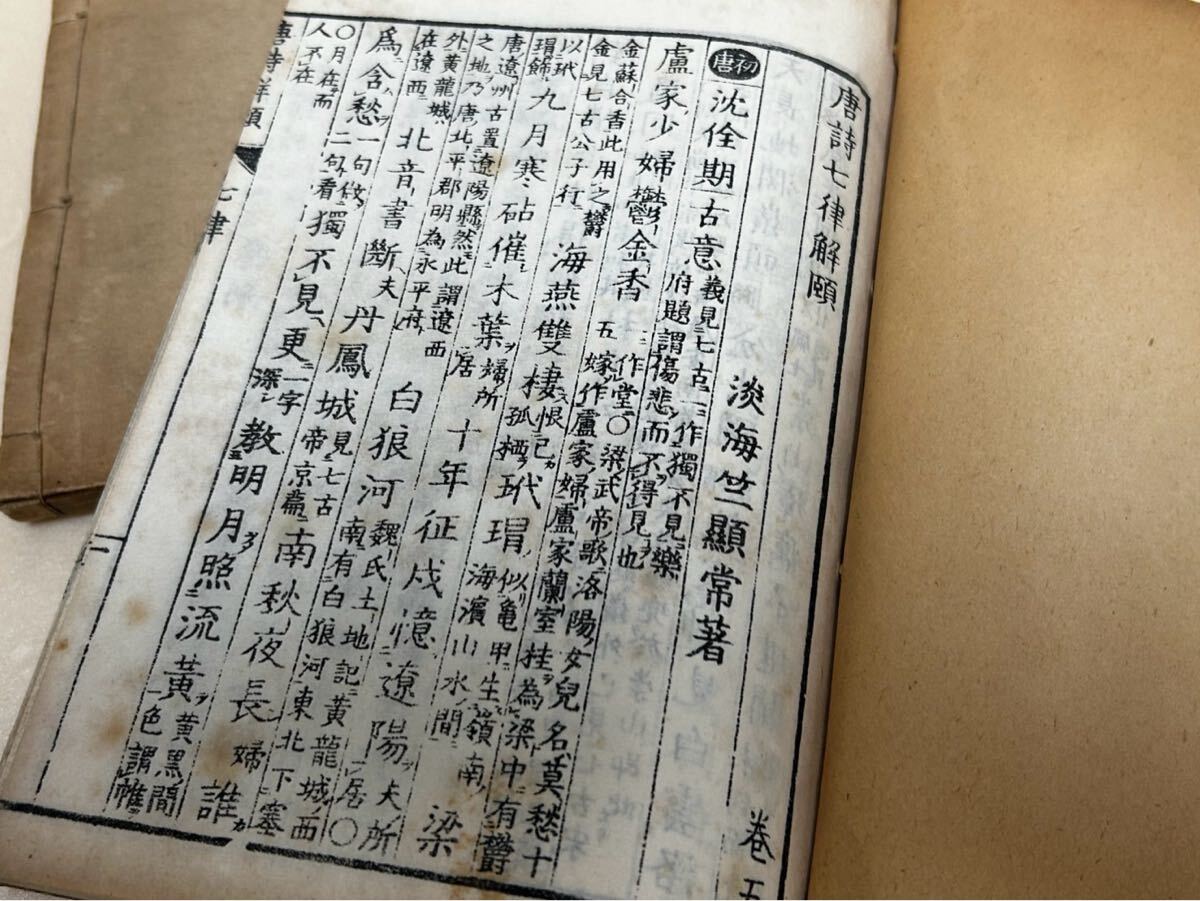 唐詩七律解頤 卷五
淡海竺顯常著
初唐 沈佺期古意 義見七古一作獨不見樂府題謂傷悲而不得見也
盧家少婦鬱金香 一作堂〇梁武帝歌洛陽女兒名莫愁十五嫁作盧家婦盧家蘭室桂為梁中有欝
金蘇合香此用之欝金見七古公子行 海燕雙棲 恨己孤栖 玳瑁 似龜甲生嶺南海濱山水間 梁
以玳瑁飾 九月寒砧催木葉 婦所居 十年征戍憶遼陽 夫所居〇
唐遼州古置遼陽縣然此謂遼西之地乃唐北平郡明為永平府 白狼河 魏氏土地記黃龍城西南有白狼河東北下塞
外黃龍城在遼西 北音書斷 夫 丹鳳城 見七古帝京篇 南秋夜長 婦 誰
為含愁 一句做二句看 獨不見更 一字深 教明月照流黃 黃黑間一色謂帷
〇月在而人不在
唐詩解頤 七律 一